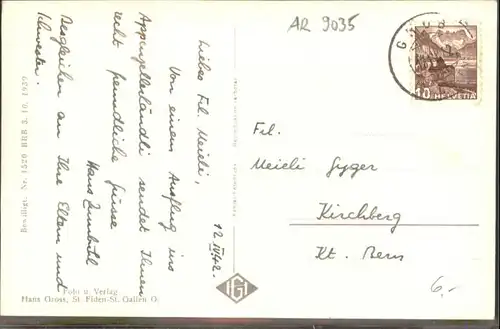 AR 9035
12.IV.42.
Liebes Frl. Meieli,
Von einem Ausflug ins
Appenzellerländli sendet Ihnen
recht freundliche Grüsse
Desgleichen an Ihre Eltern und
Schwester.
Hans
Bewilligt. Nr. 1550 BRB 3. 10. 1939
Foto u. Verlag
Hans Gross, St. Fiden-St. Gallen O.
10 HELVETIA
Frl.
Meieli Gyger
Kirchberg
Kt. Bern
6.-